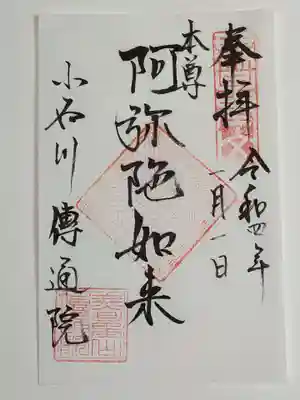 奉拝
令和四年
一月一日
本尊
阿弥陀如来
小石川 傳通院